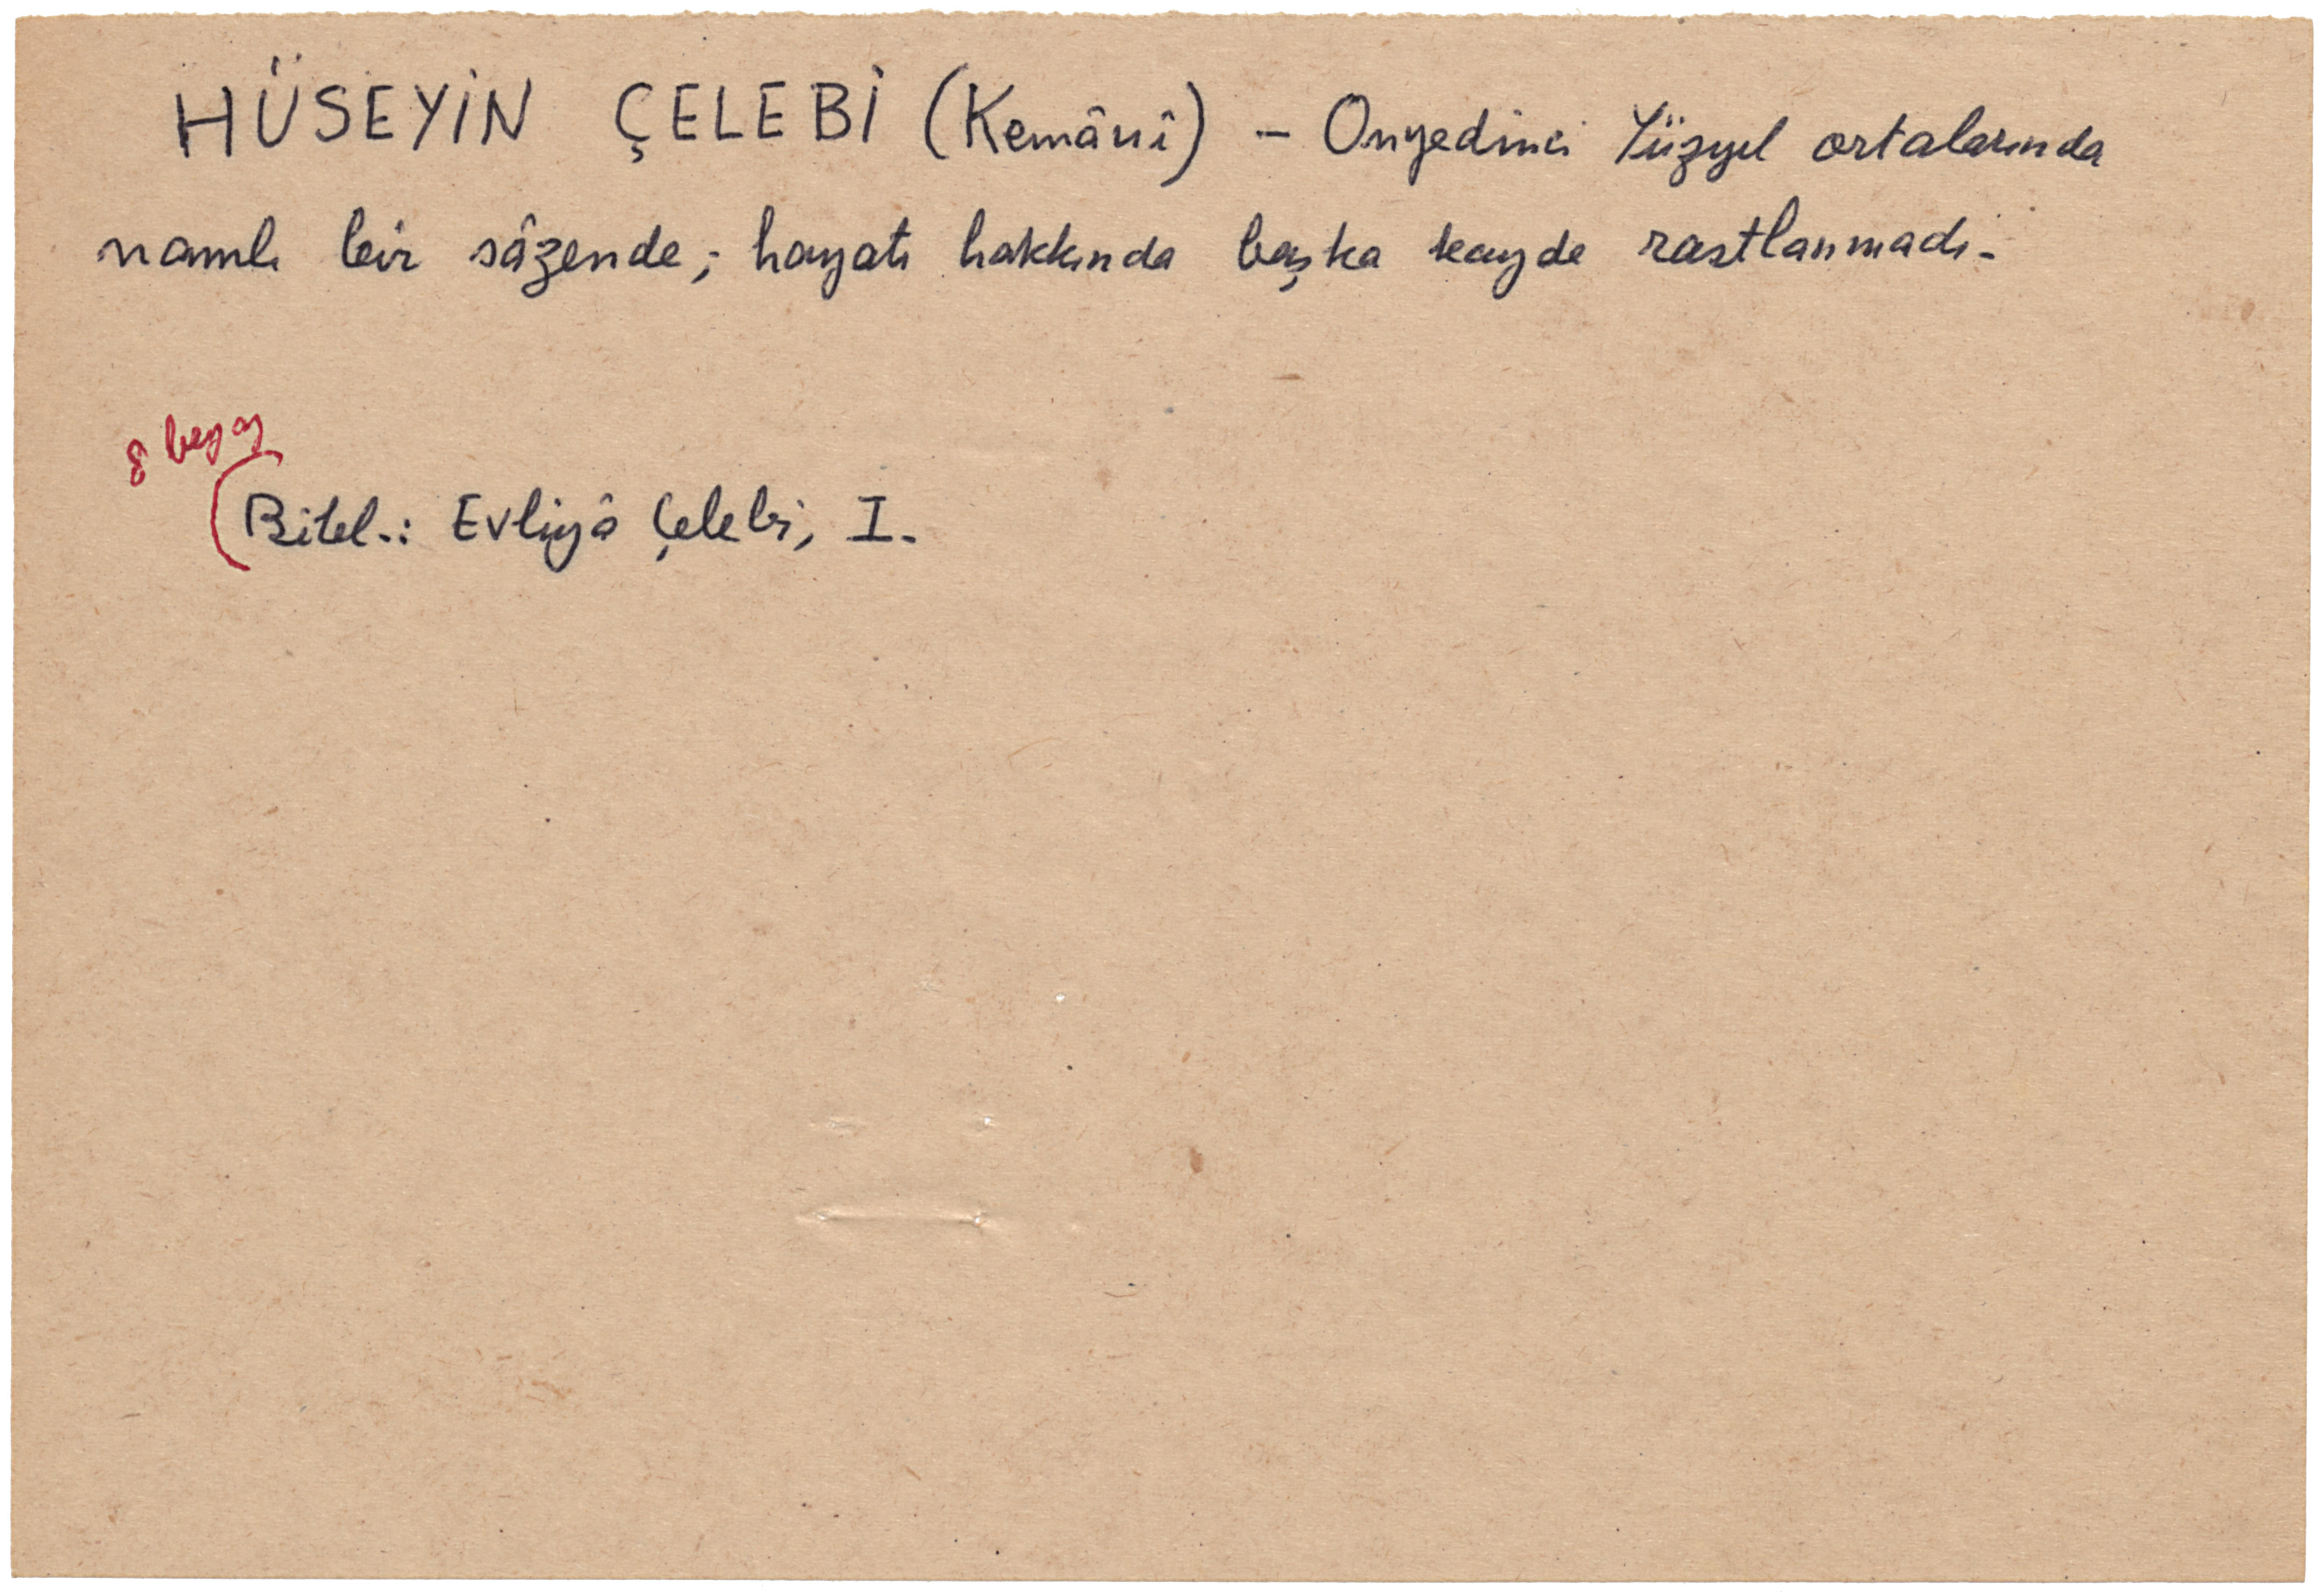 HÜSEYİN ÇELEBİ (Kemânî) - Onyedinci Yüzyıl ortalarında
namlı bir sâzende; hayatı hakkında başka kayde rastlanmadı.
8 beyaz
(Bibl.: Evliyâ Çelebi, I.